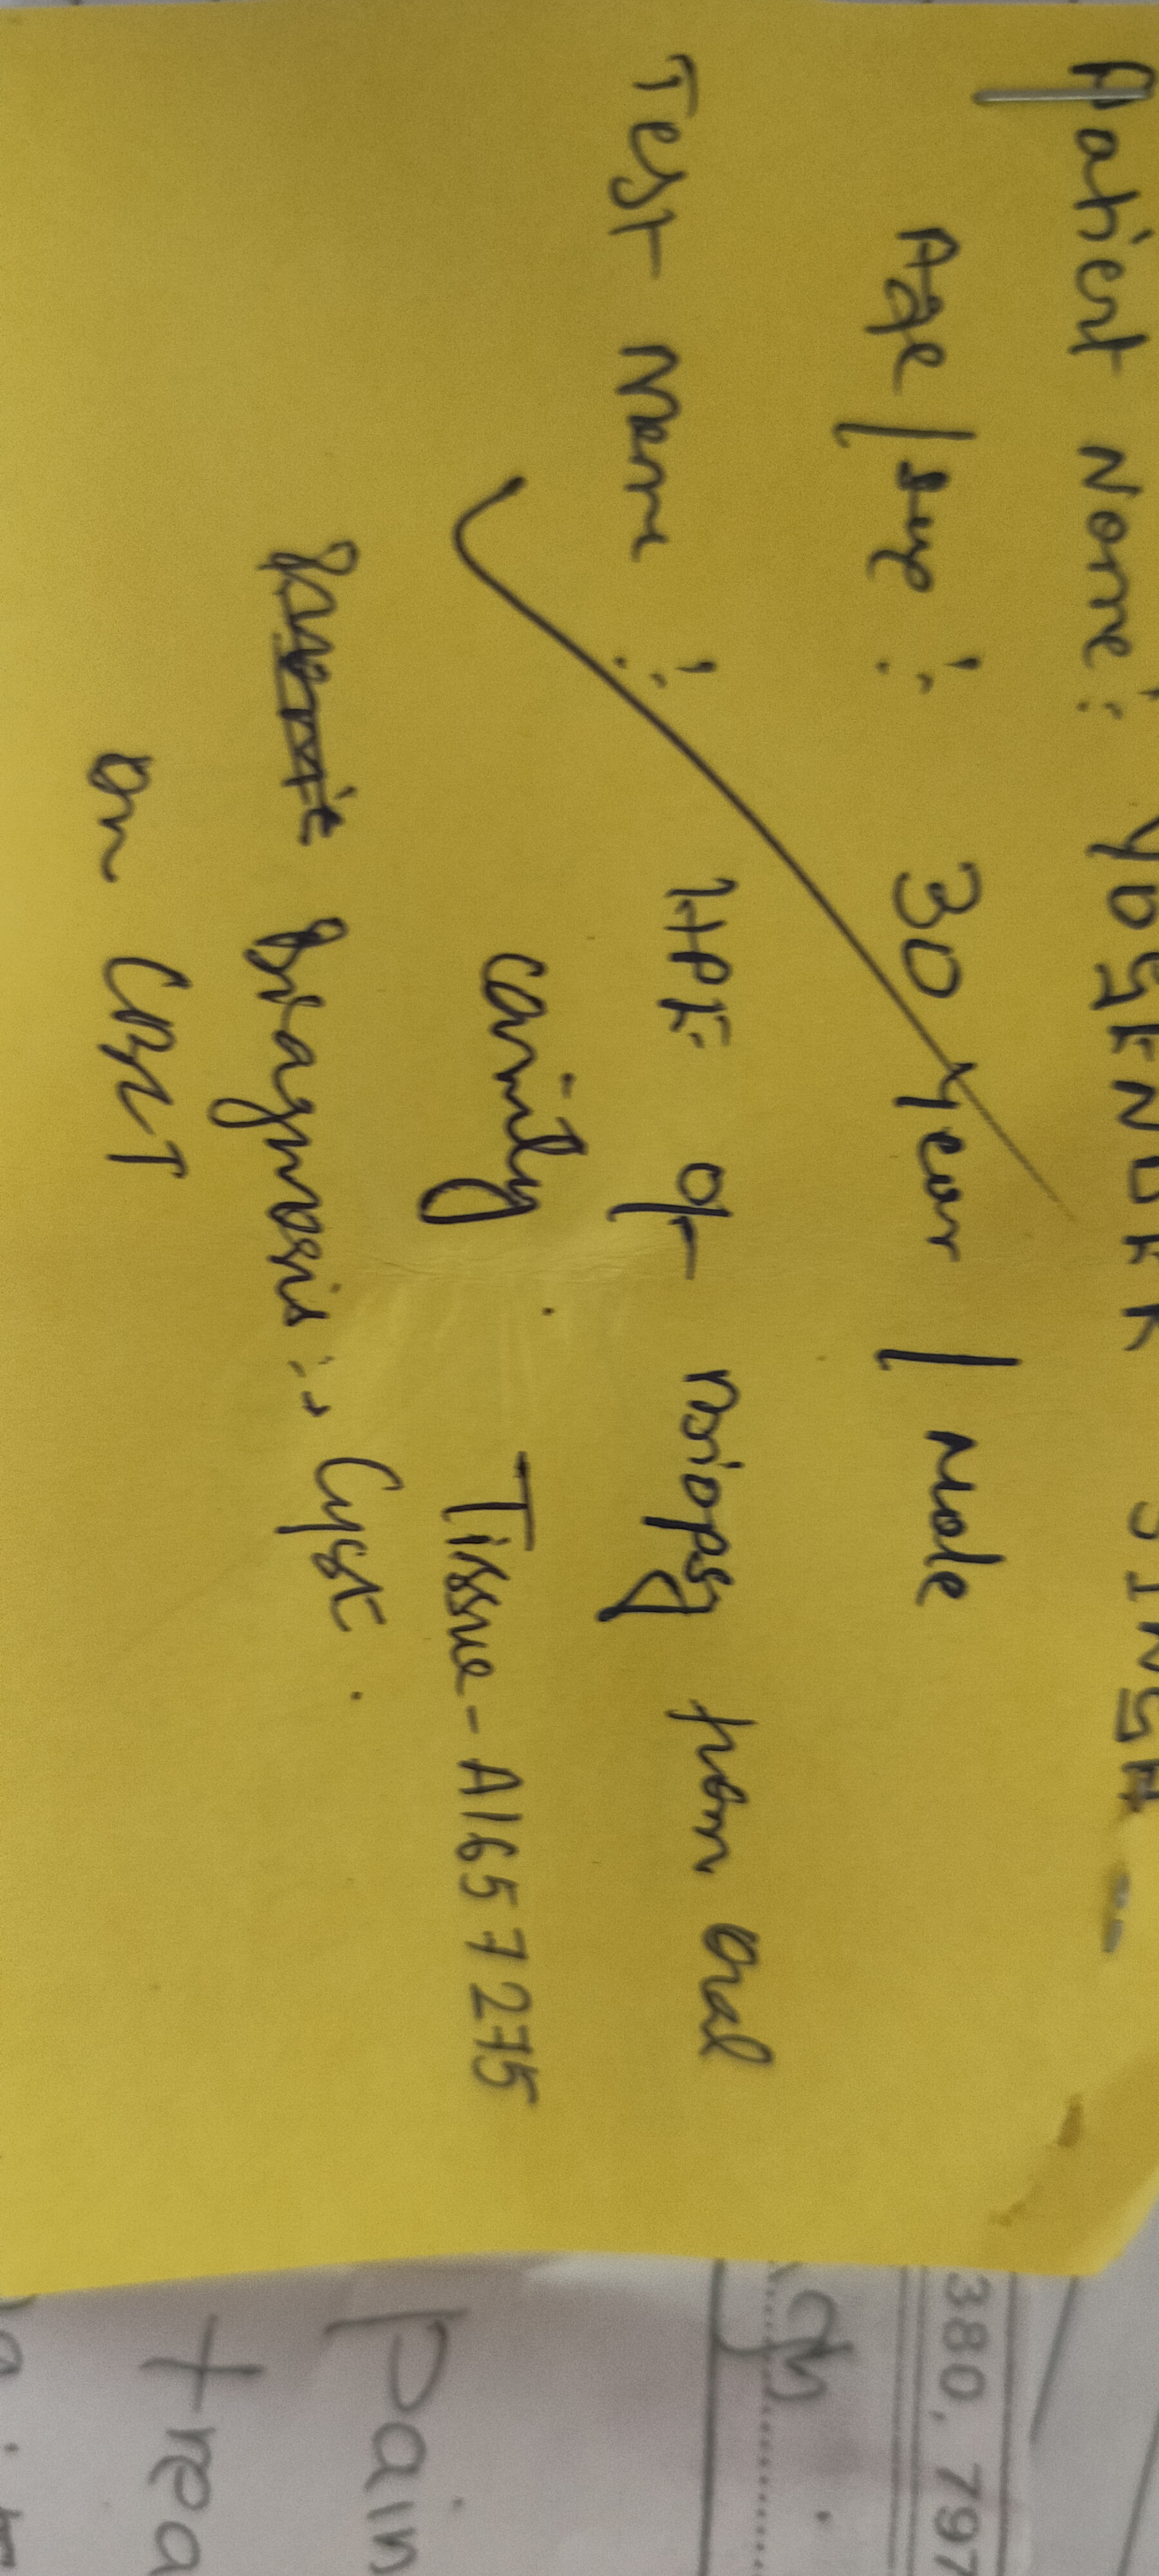 Patient Name : YOGENDER SINGH
Age / sex : 30 Year / Male
Test Name : HPE of Biopsy from oral
cavity. Tissue - A1657275
Diagnosis :→ Cyst.
on CBCT
380, 797
Pain
trea